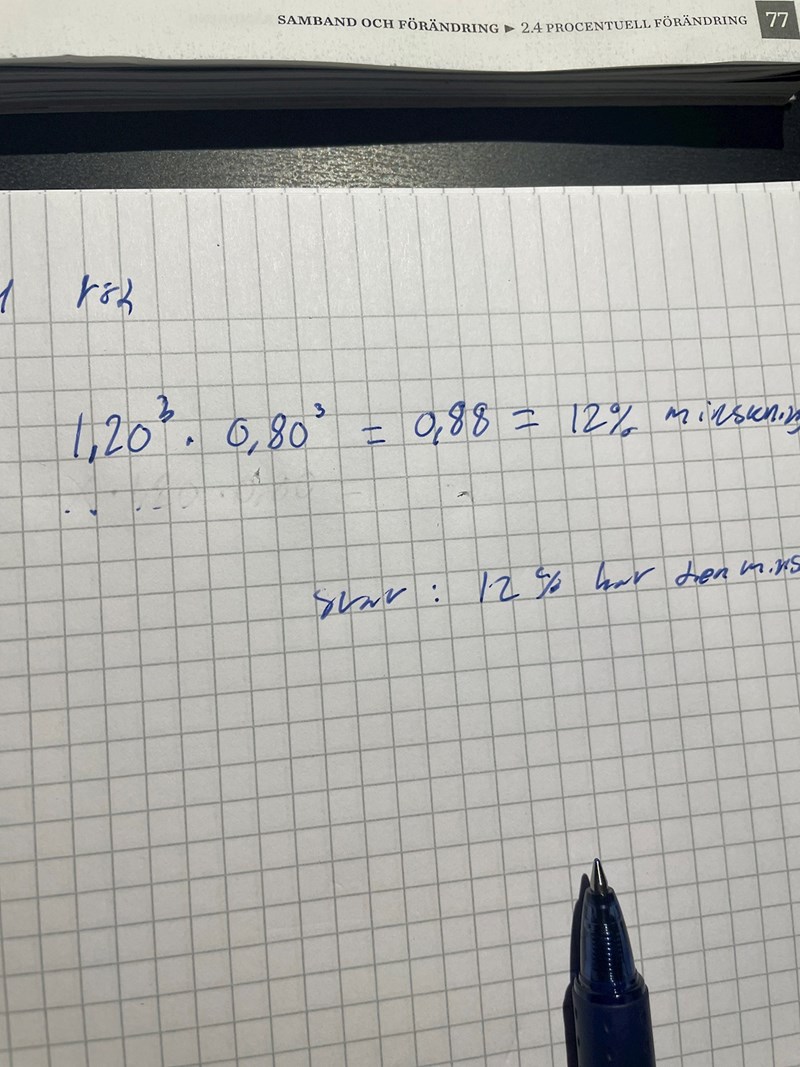 SAMBAND OCH FÖRÄNDRING ▶ 2.4 PROCENTUELL FÖRÄNDRING 77
1,20³ · 0,80³ = 0,88 = 12% minskning
svar: 12% har den mins